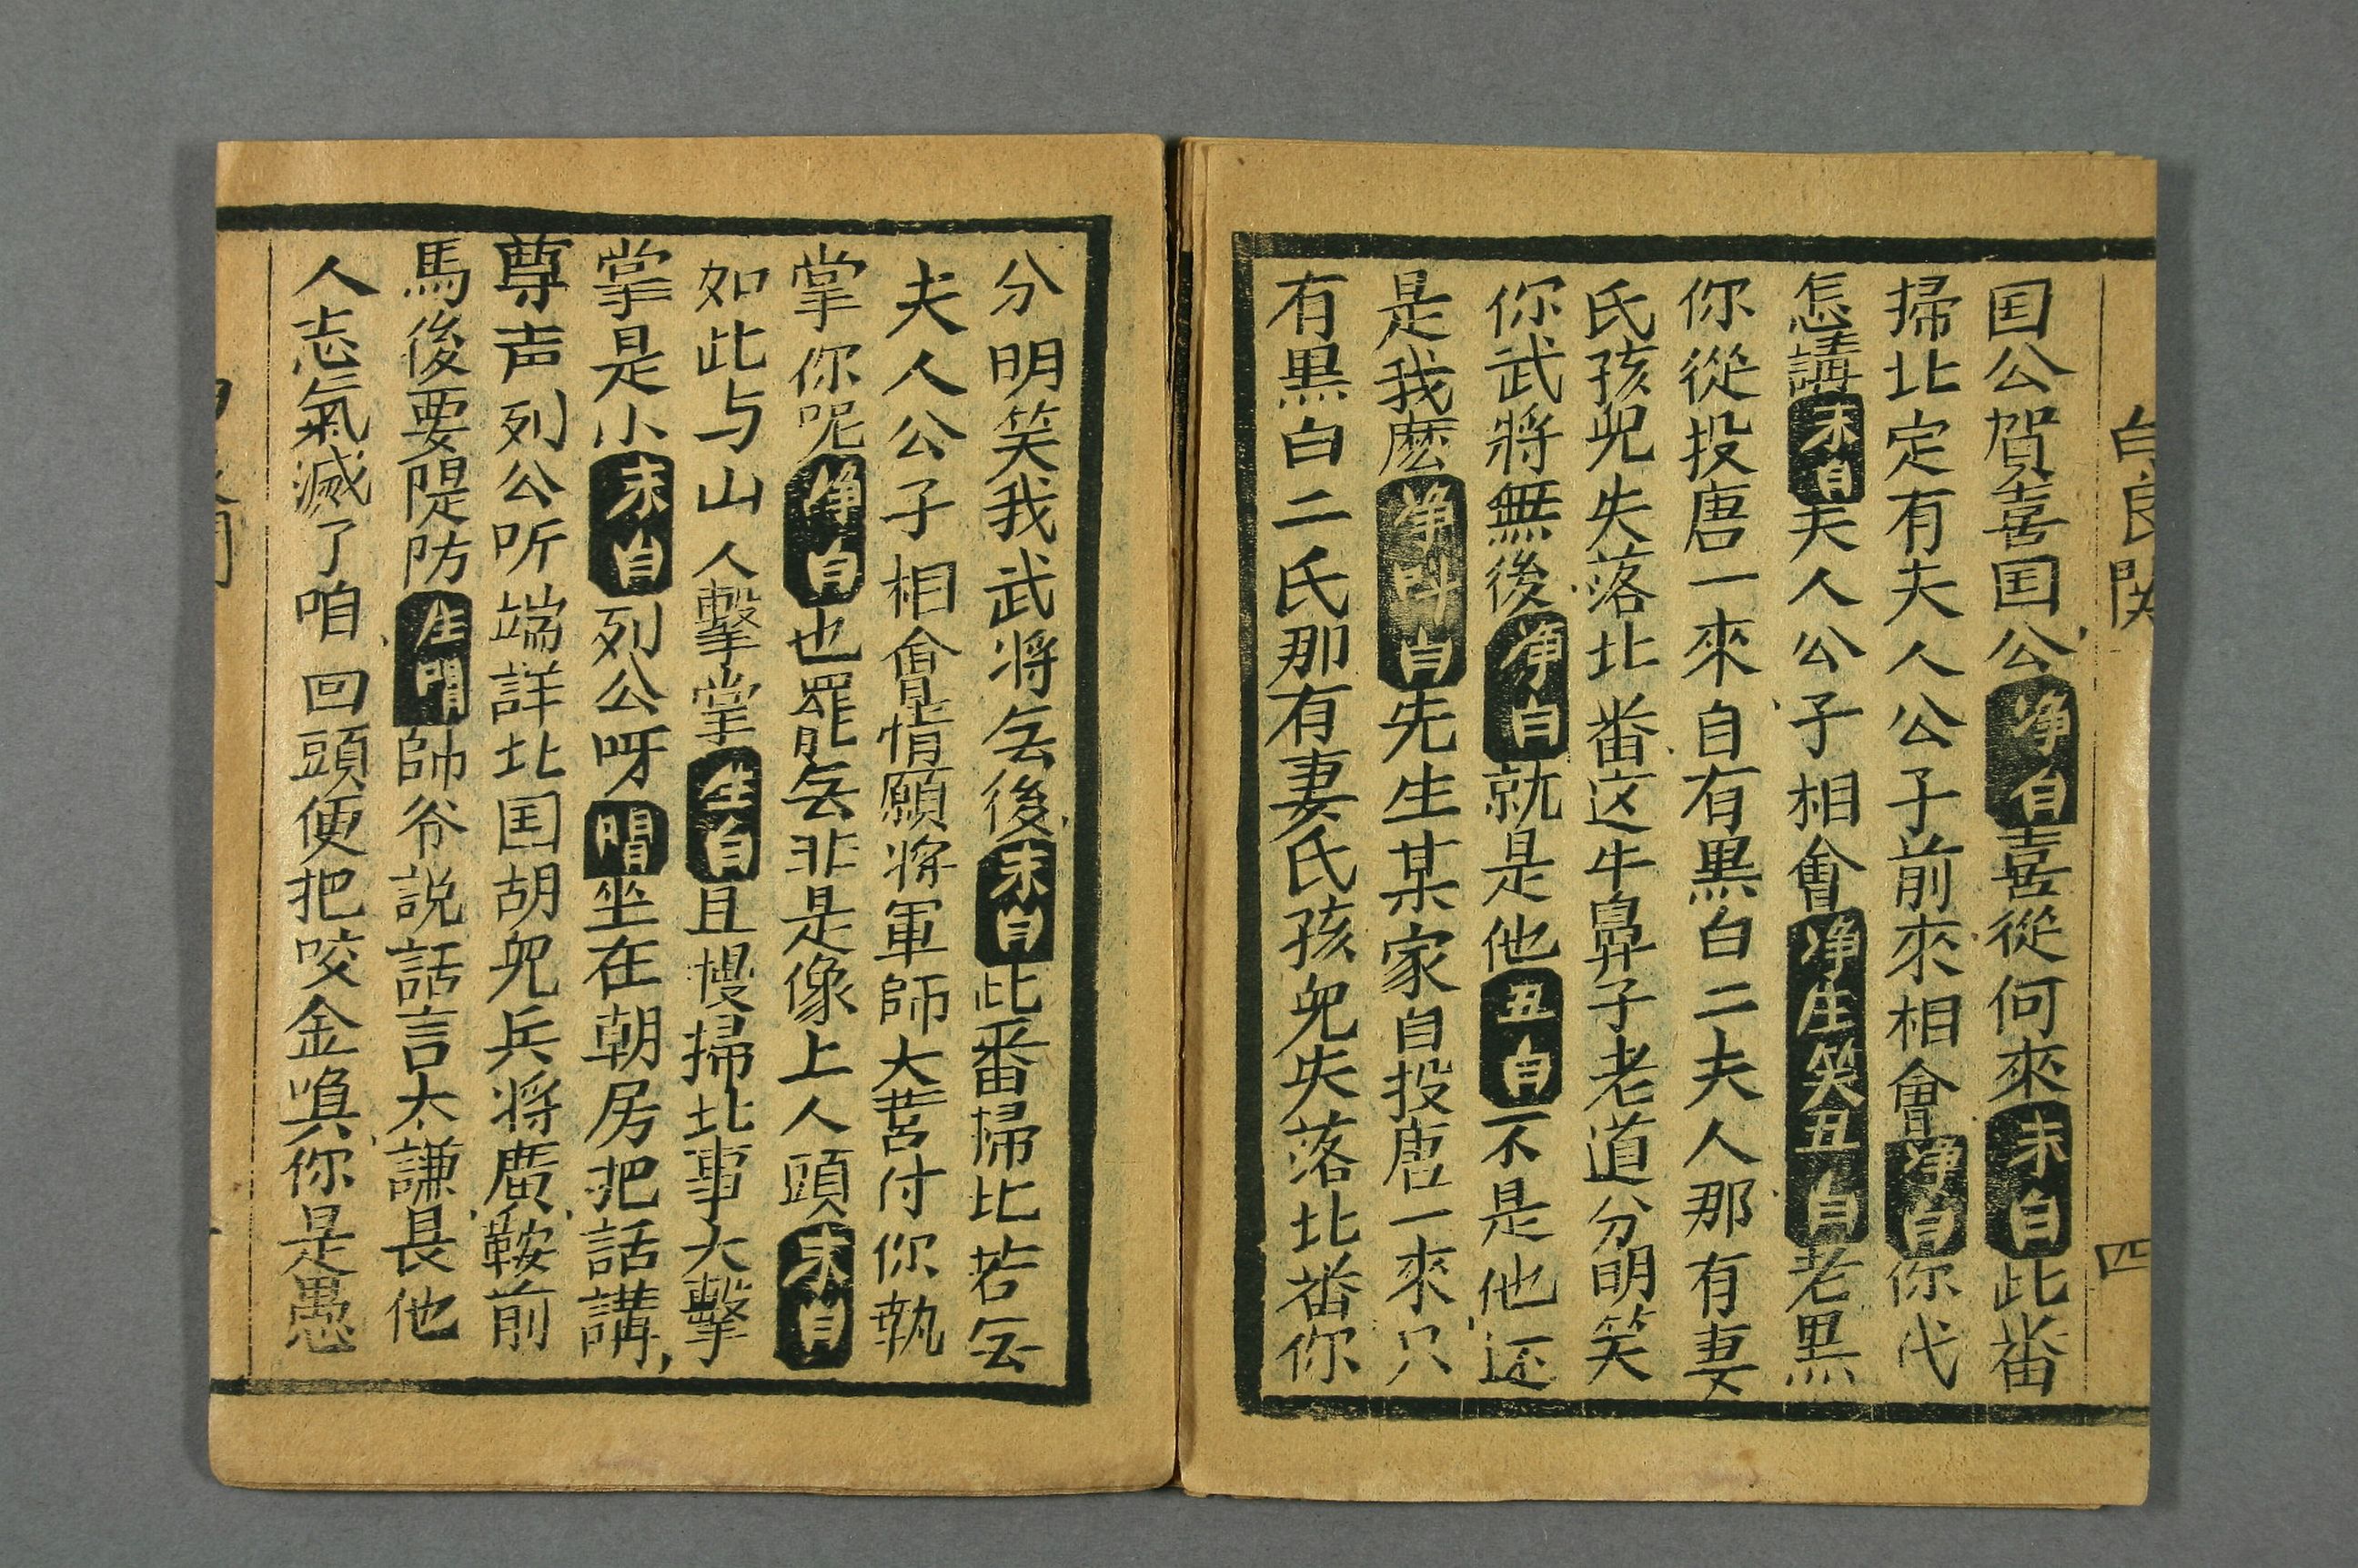 白良関 四
国公賀喜国公净白喜從何來末白此番
掃北定有夫人公子前來相會净白你代
怎講末白夫人公子相會净生笑丑白老黒
你從投唐一來自有黒白二夫人那有妻
氏孩兒失落北番这牛鼻子老道分明笑
你武將無後净白就是他丑白不是他还
是我麽净 白先生某家自投唐一來只
有黒白二氏那有妻氏孩兒失落北番你
分明笑我武将無後末白此番掃北若無
夫人公子相會情願將軍師大营付你執
掌你呢净白也罷無非是像上人頭末白
如此与山人擊掌生白且慢掃北事大擊
掌是小末白列公呀唱坐在朝房把話講
尊声列公听端詳北国胡兒兵将廣鞍前
馬後要隄防生唱帥爷説話言太謙長他
人志氣滅了咱回頭便把咬金喚你是愚